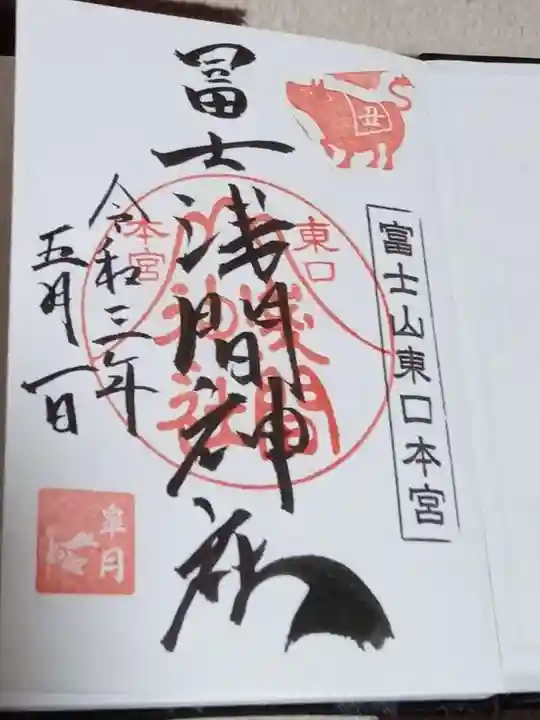 丑
富士山東口本宮
冨士浅間神社
東口
本宮
浅間
神社
令和三年
五月一日
皐月